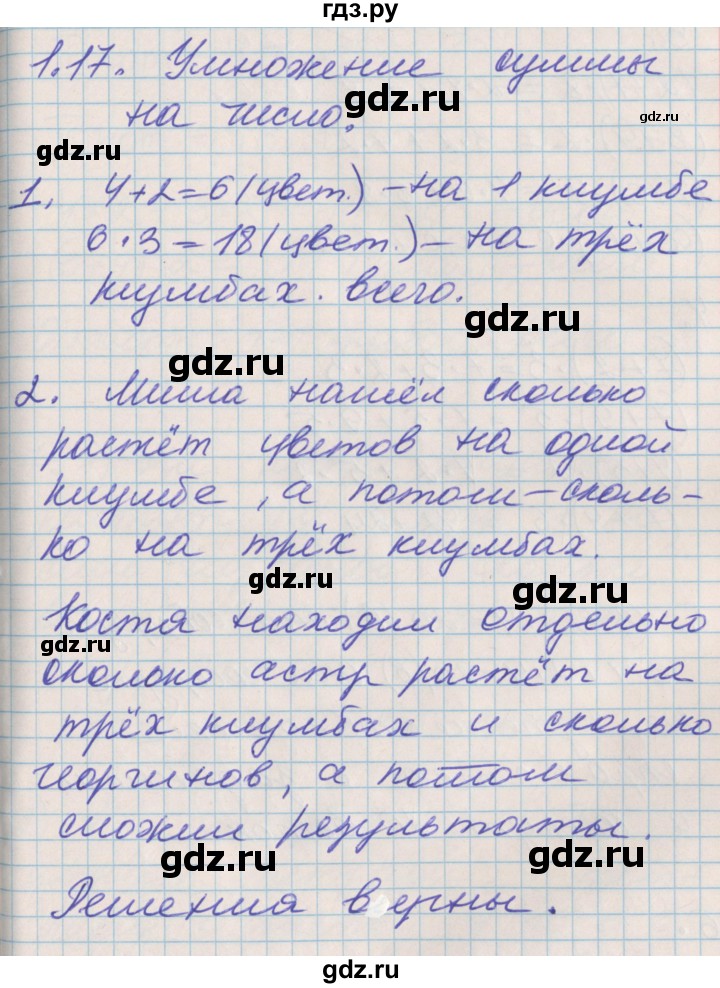 гдз.ру
1.17. Умножение суммы
gdz.ru
gdz.ru
на число.
gdz.ru
1. 4+2=6(цвет.) – на 1 клумбе
gdz.ru
6·3=18(цвет.) – на трёх
клумбах. всего.
gdz.ru
gdz.ru
2. Миша нашёл сколько
растёт цветов на одной
gdz.ru
gdz.ru
клумбе, а потом – сколь-
ко на трёх клумбах.
gdz.ru
gdz.ru
Костя находил отдельно
gdz.ru
сколько астр растёт на
трёх клумбах и сколько
gdz.ru
георгинов, а потом
сложил результаты.
gdz.ru
gdz.ru
Решения верны.
gdz.ru